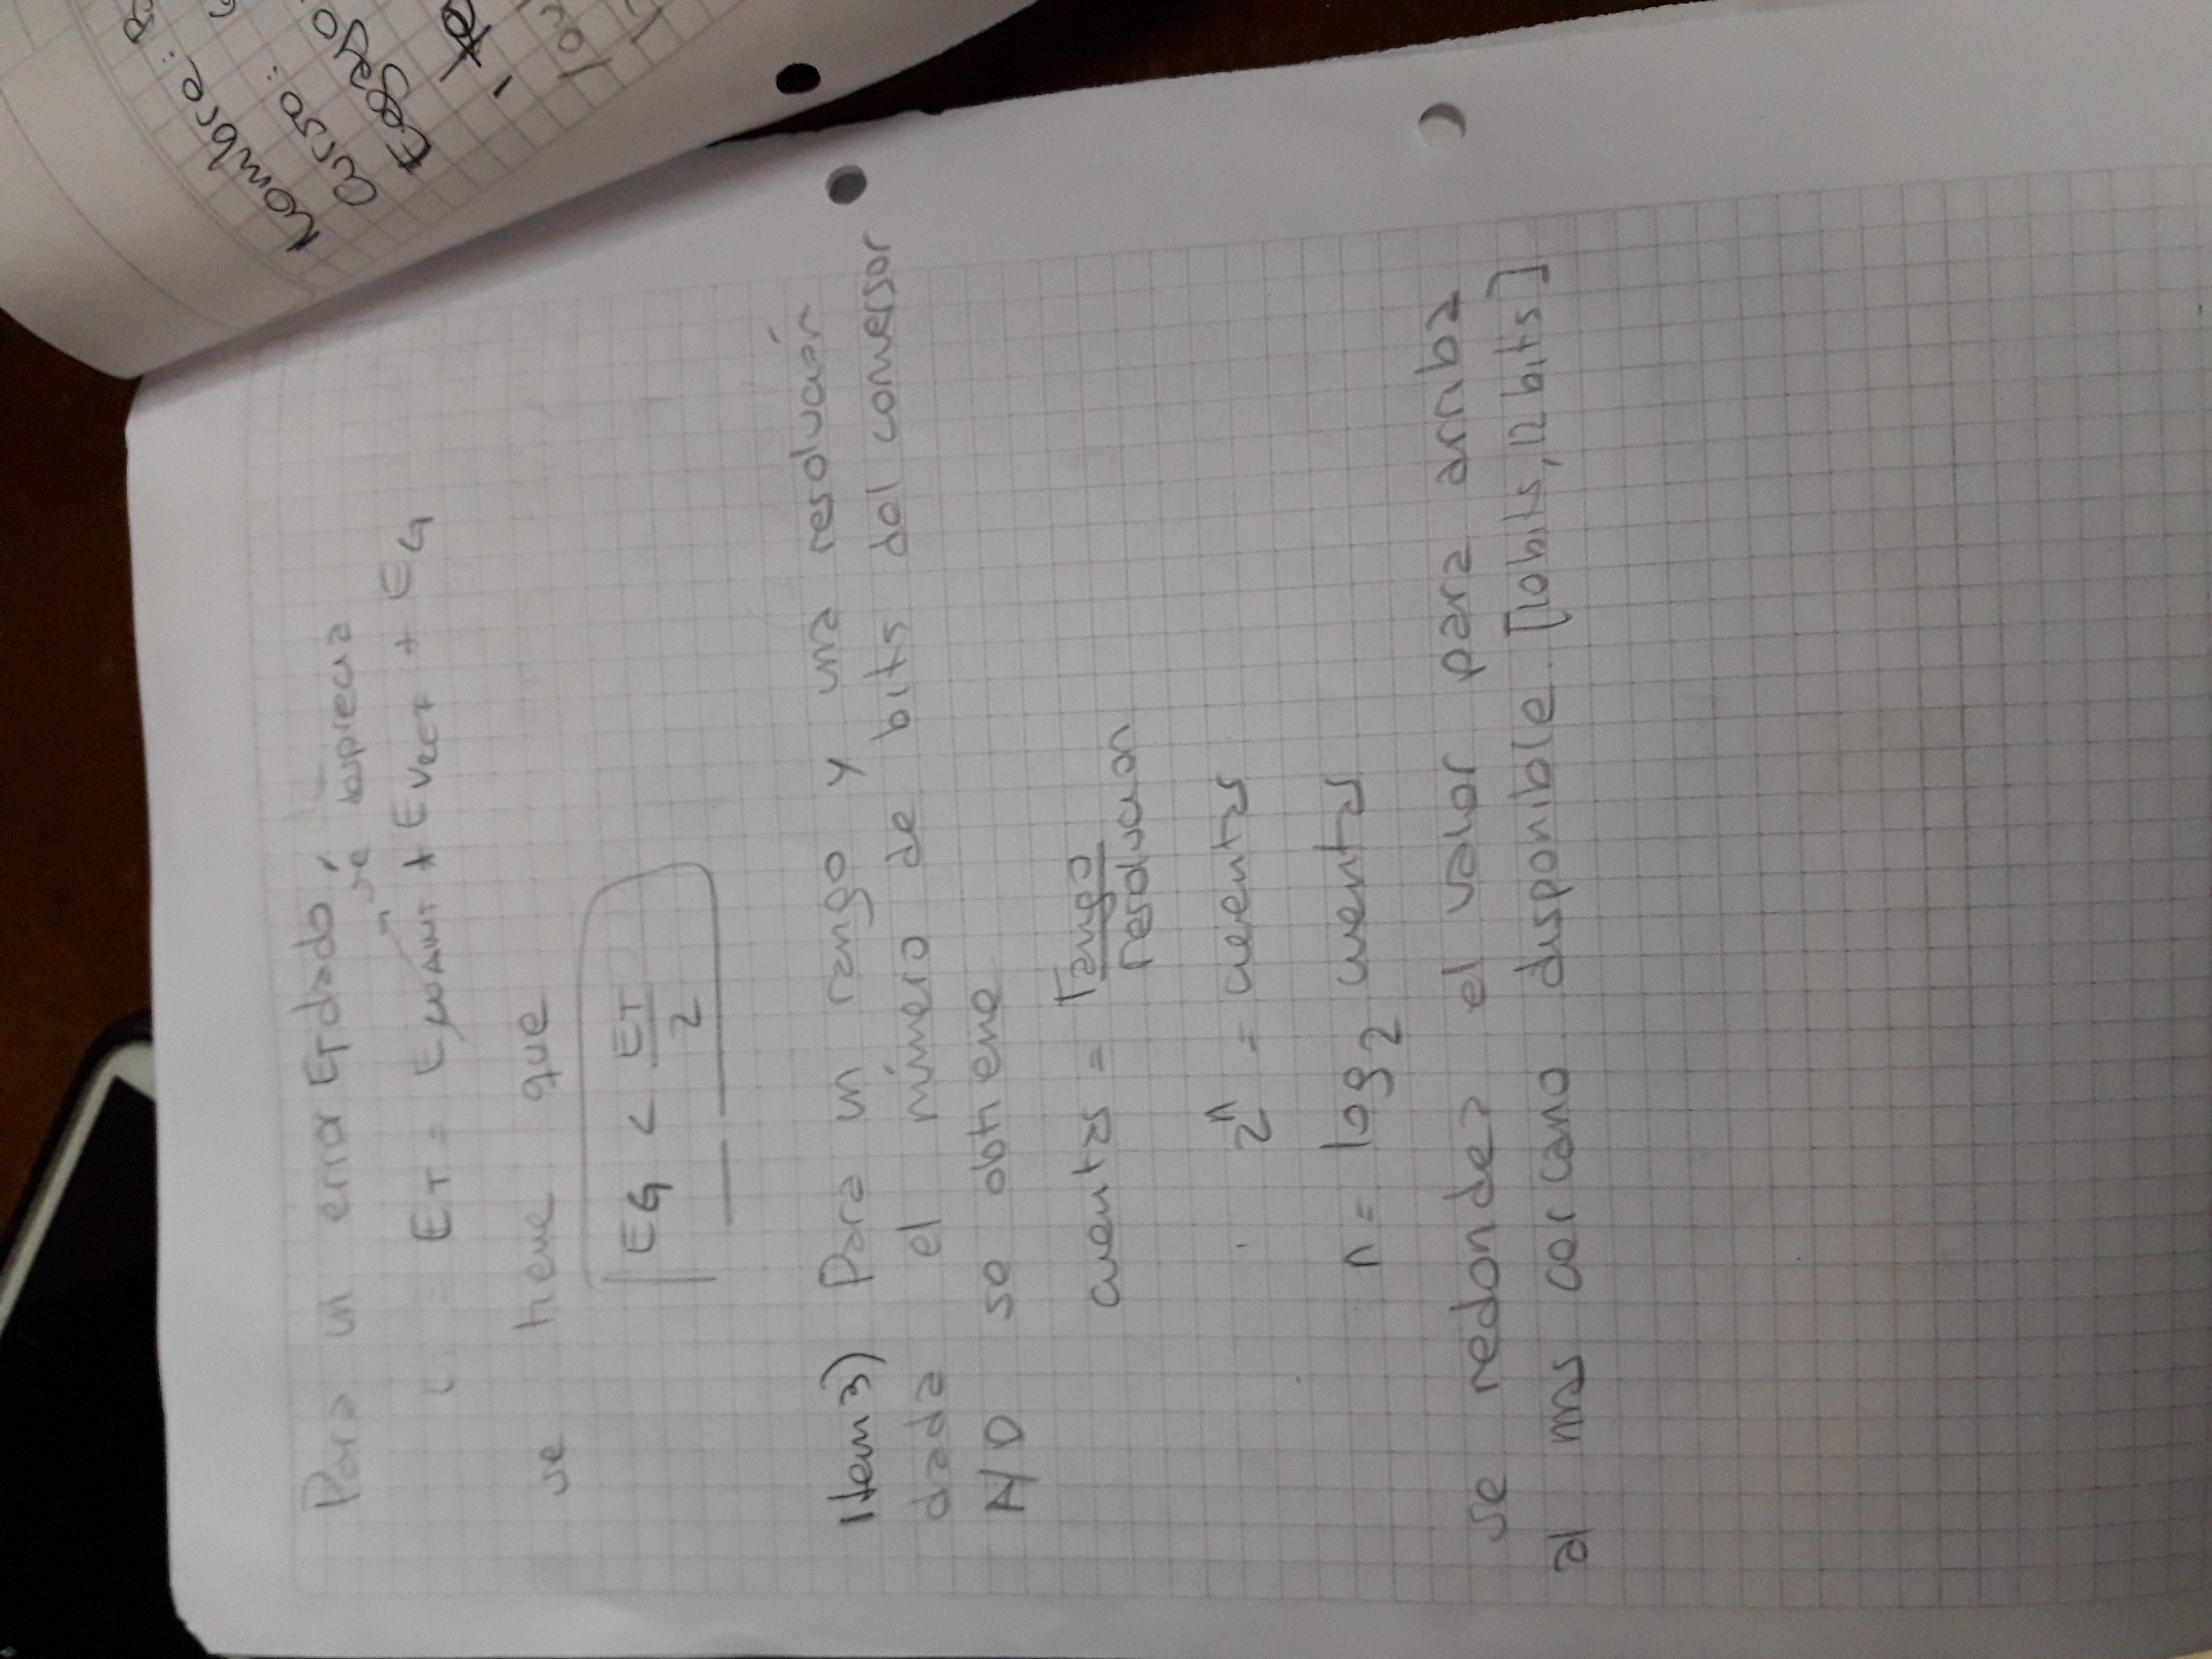 Para un error ET dado,
se desprecia
ET = ECUANT + EVECT + EG
se tiene que
EG < ET
2
Item 3) Para un rango y una resolución
dada el número de bits del conversor
A/D se obtiene
cuentas = rango
resolucion
2^n = cuentas
n = log2 cuentas
se redondea el valor para arriba
al mas cercano disponible. [10 bits, 12 bits]
Nombre:
Curso: